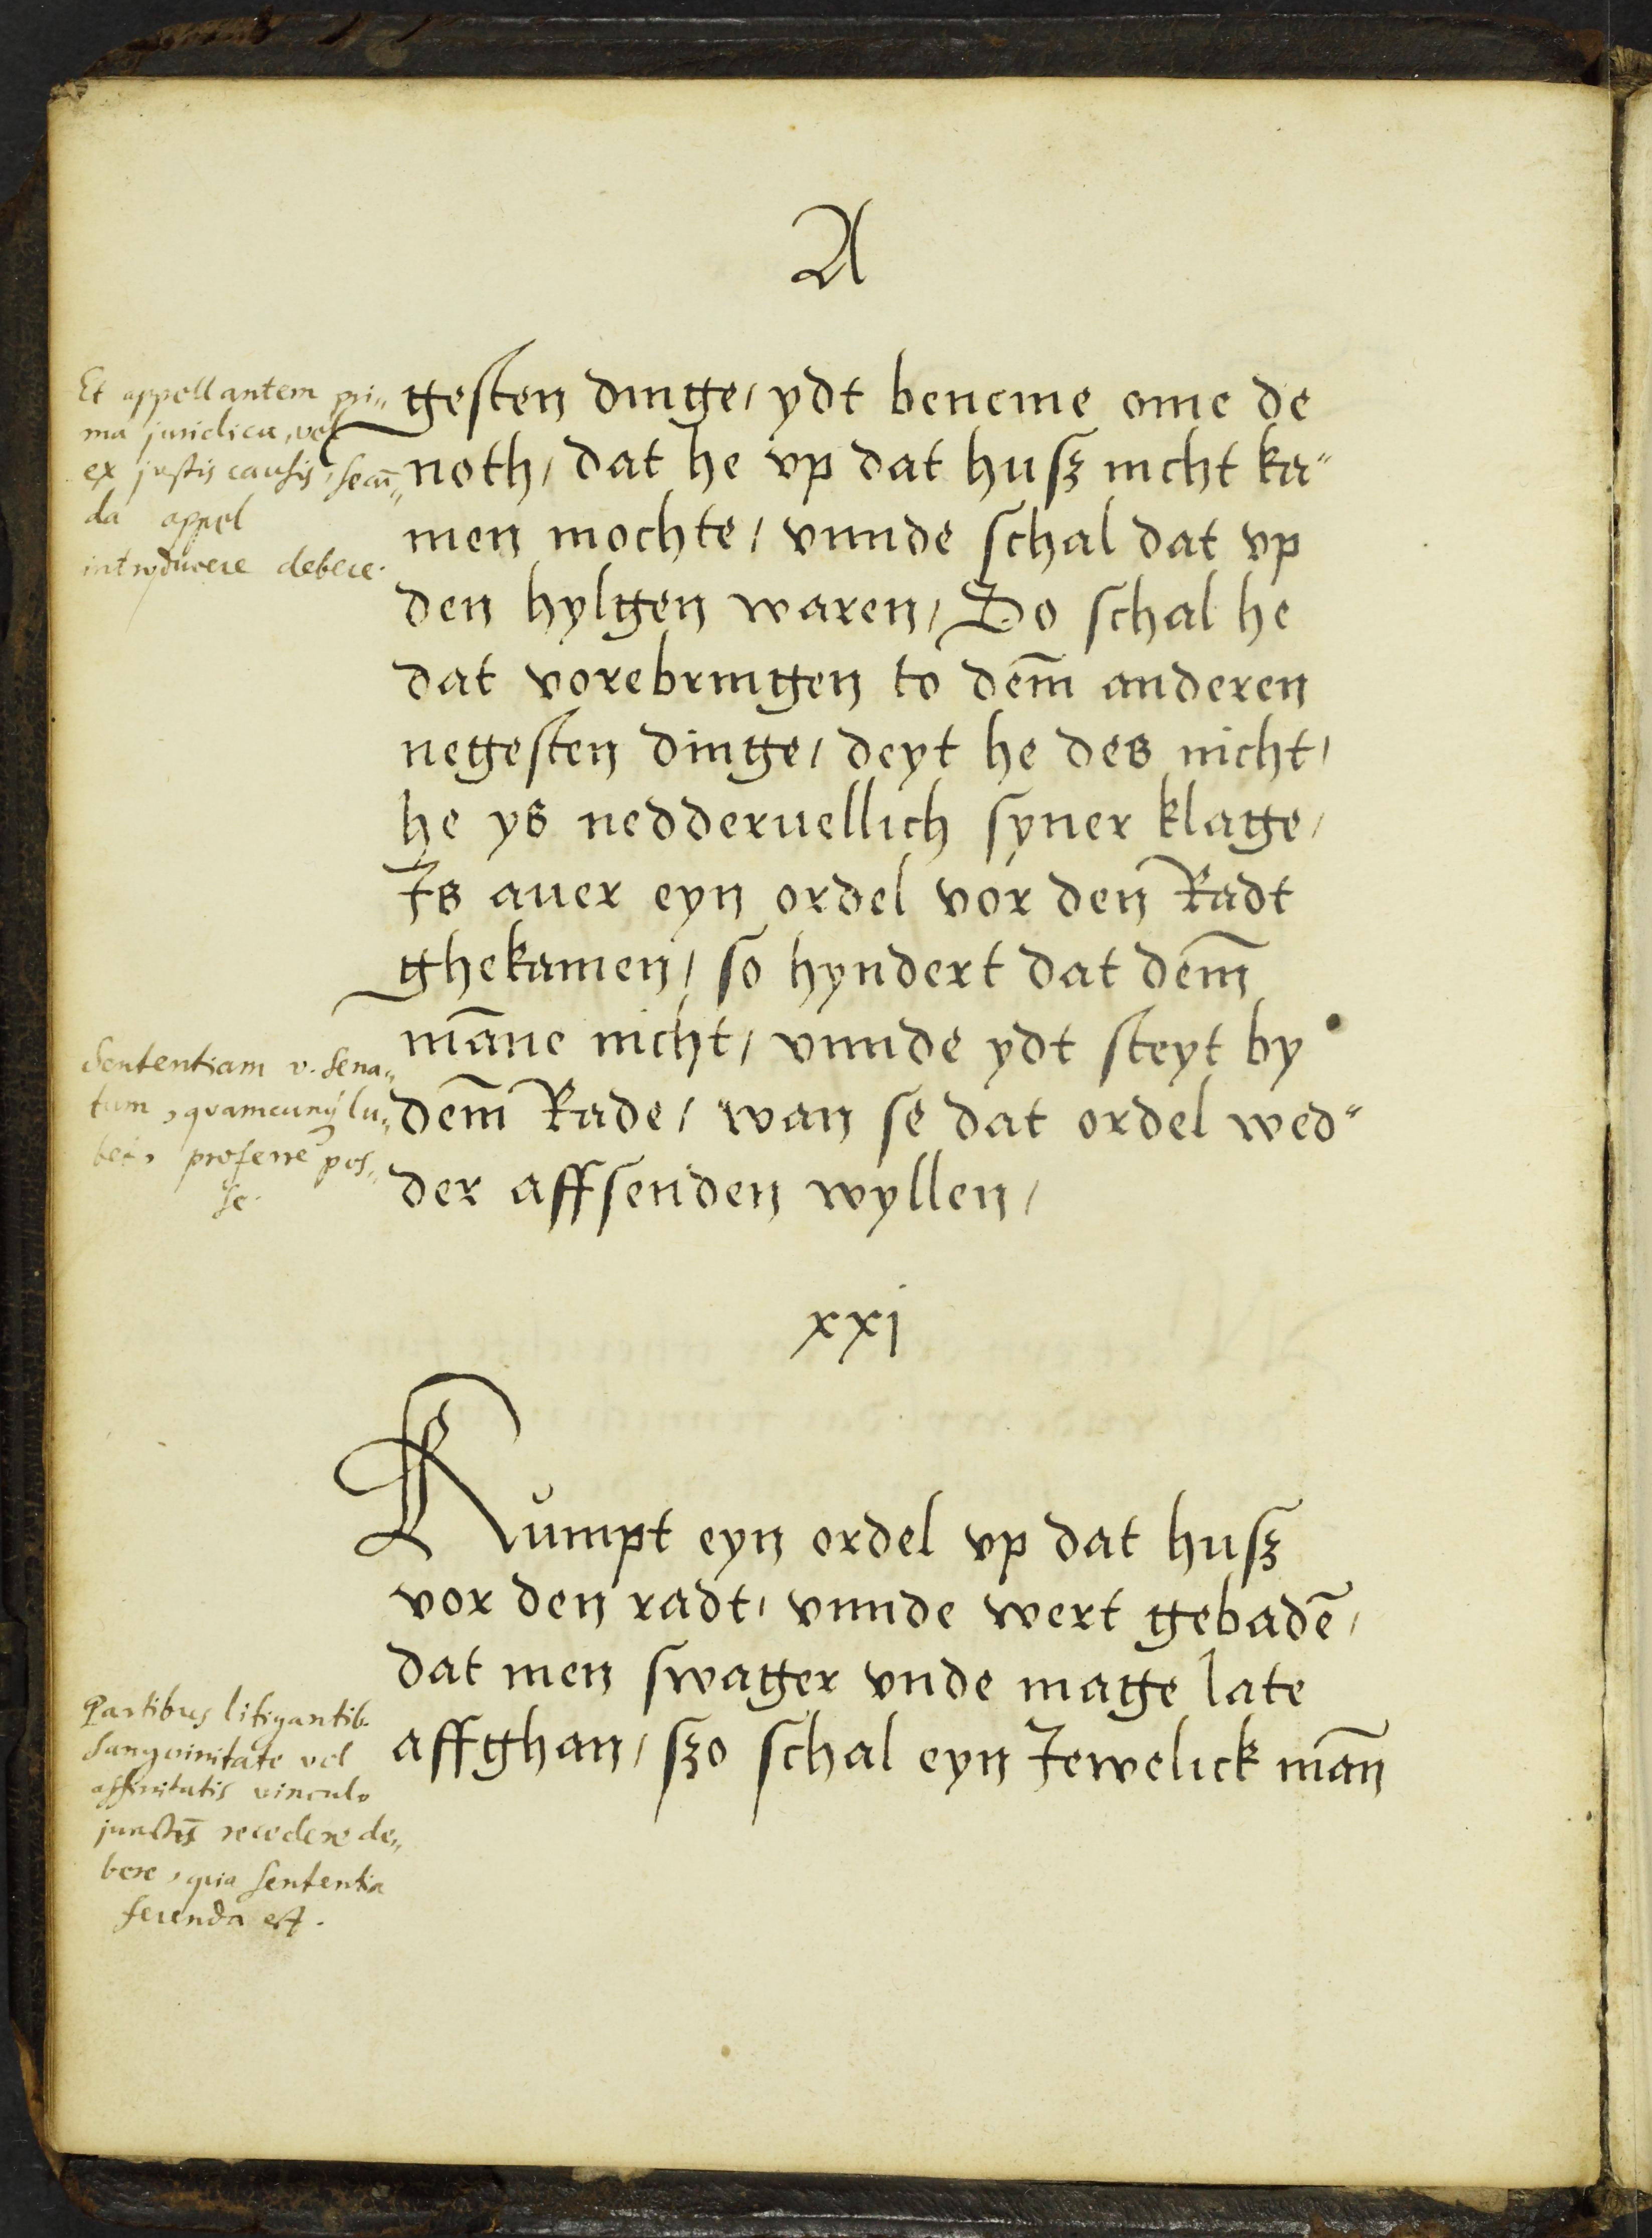 A
Et appellantem pri„
ma juridica, vel
ex justis causis, secū„
da appel
introducere debere.
gesten dinge, ydt beneme ome de
noth, dat he vp dat husz nicht ka„
men mochte, vnnde schal dat vp
den hylgen waren, So schal he
dat vorebringen to dem̄ anderen
negesten dinge, deyt he des nicht,
he ys nedderuellich syner klage,
Is auer eyn ordel vor den Radt
ghekamen, so hyndert dat dem̄
māne nicht, vnnde ydt steyt by
dem̄ Rade, wan se dat ordel wed„
der affsenden wyllen,
Sententiam v. Sena„
tum, quamcunq lu„
bet, proferre pos„
se.
xxi
Kumpt eyn ordel vp dat husz
vor den radt, vnnde wert gebadē,
dat men swager vnde mage late
affghan, szo schal eyn Jewelick mān
Partibus litigantib.
sangvinitate vel
affinitatis vinculo
junctis recedere de„
bere, quia sententia
ferenda est.